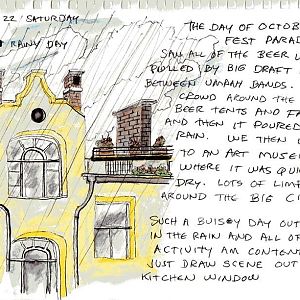 22 SATURDAY
RAINY DAY
THE DAY OF OCTOB
FEST PARAD
SAW ALL OF THE BEER
PULLED BY BIG DRAFT
BETWEEN UMPAH BANDS.
CROWD AROUND THE
BEER TENTS AND
AND THEN IT POURED
RAIN. WE THEN
TO AN ART MUSE
WHERE IT WAS QUI
DRY. LOTS OF
AROUND THE BIG CI
SUCH A BUISEY DAY OUT
IN THE RAIN AND ALL OF
ACTIVITY AM CONTEN
JUST DRAW SCENE OUT
KITCHEN WINDOW